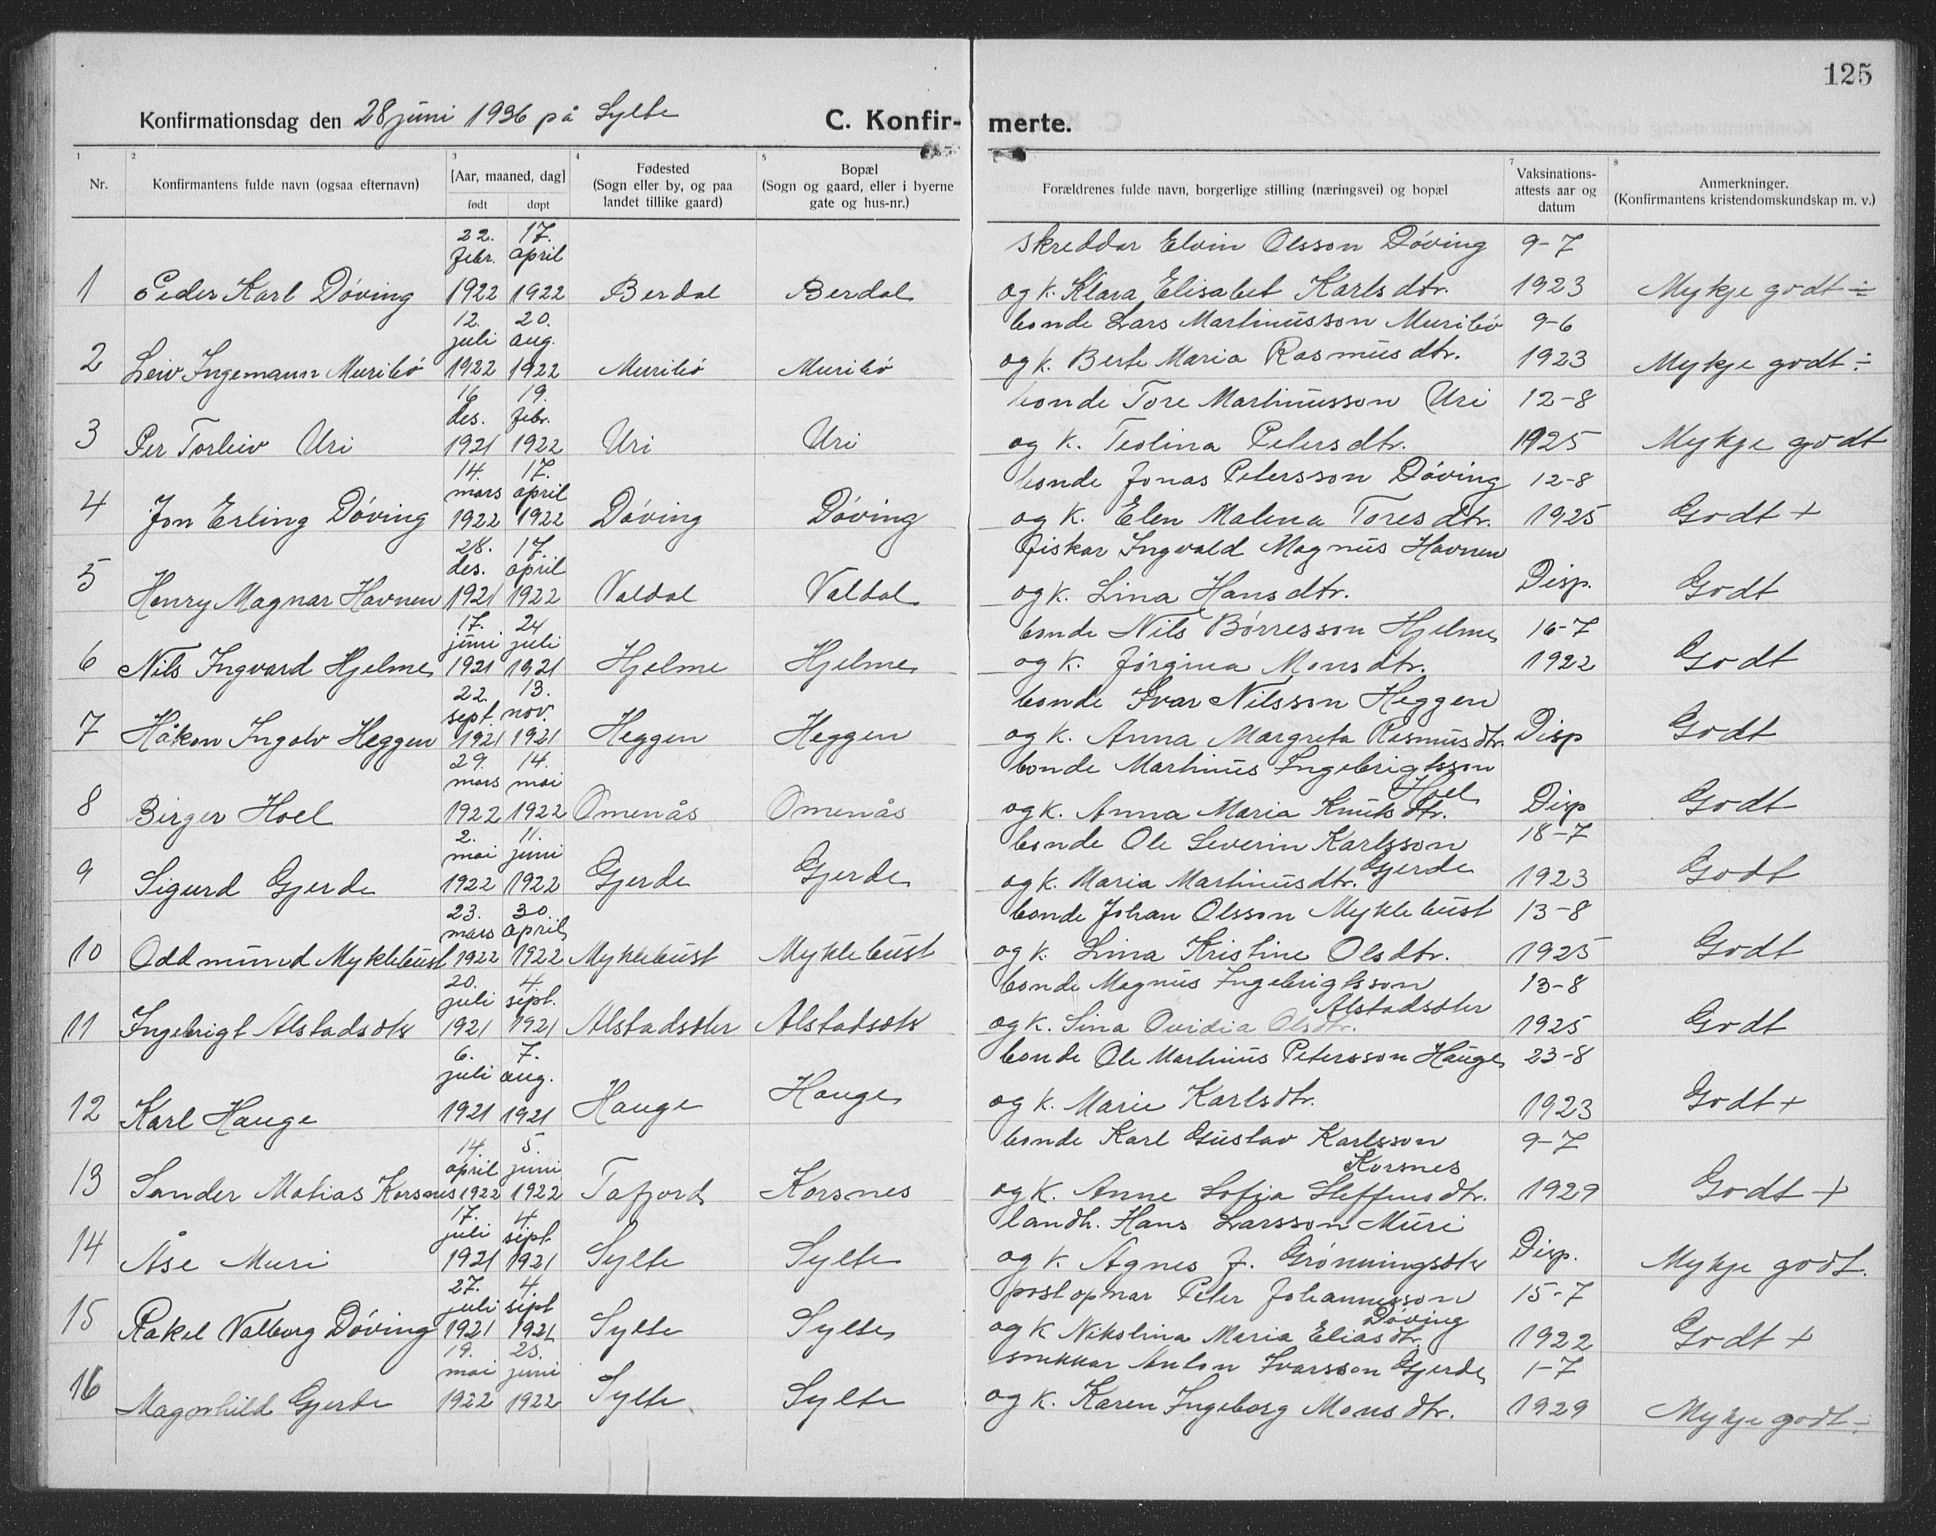 125
Konfirmationsdag den 28 juni 1936 på Sylte C. Konfirmerte.
1 2 3 4 5 7 8
Nr. Konfirmantens fulde navn (ogsaa efternavn) [Aar, maaned, dag] født døpt Fødested (Sogn eller by, og paa landet tillike gaard) Bopæl (Sogn og gaard, eller i byerne gate og hus-nr.) Forældrenes fulde navn, borgerlige stilling (næringsvei) og bopæl Vaksinations-attests aar og datum Anmerkninger. (Konfirmantens kristendomskundskap m. v.)
22. 17. skreddar Elvin Olsson Døving 9-7
febr. april
1 Peder Karl Døving 1922 1922 Berdal Berdal og k. Klara Elisabet Karlsdtr. 1923 Mykje godt ÷
12. 20. bonde Lars Martinusson Muribø 9-6
juli aug.
2 Leiv Ingemann Muribø 1922 1922 Muribø Muribø og k. Berte Maria Rasmusdtr. 1923 Mykje godt ÷
16 19. bonde Tore Martinusson Uri 12-8
des. febr.
3 Per Torleiv Uri 1921 1922 Uri Uri og k. Teolina Petersdtr. 1925 Mykje godt
14. 17. bonde Jonas Petersson Døving 12-8
mars april
4 Jon Erling Døving 1922 1922 Døving Døving og k. Elen Malena Toresdtr. 1925 Godt +
28. 17. fiskar Ingvald Magnus Havnen
des. april
5 Henry Magnar Havnen 1921 1922 Valdal Valdal og k. Lina Hansdtr. Disp. Godt
17. 24 bonde Nils Børresson Hjelme 16-7
juni juli
6 Nils Ingvard Hjelme 1921 1921 Hjelme Hjelme og k. Jørgina Monsdtr. 1922 Godt
22. 13. bonde Ivar Nilsson Heggen
sept. nov.
7 Håkon Ingolv Heggen 1921 1921 Heggen Heggen og k. Anna Margreta Rasmusdtr. Disp Godt
29. 14. bonde Martinus Ingebrigtsson
mars mai Hoel
8 Birger Hoel 1922 1922 Omenås Omenås og k. Anna Maria Knutsdtr. Disp Godt
2. 11. bonde Ole Severin Karlsson 18-7
mai juni Gjerde
9 Sigurd Gjerde 1922 1922 Gjerde Gjerde og k. Maria Martinusdtr. 1923 Godt
23. 30. bonde Johan Olsson Myklebust 13-8
mars april
10 Oddmund Myklebust 1922 1922 Myklebust Myklebust og k. Lina Kristine Olsdtr. 1925 Godt
20. 4. bonde Magnus Ingebrigtsson 13-8
juli sept. Alstadsæter
11 Ingebrigt Alstadsætr 1921 1921 Alstadsæter Alstadsætr og k. Sina Ovidia Olsdtr. 1925 Godt
6. 7. bonde Ole Martinus Petersson Hauge 23-8
juli aug.
12 Karl Hauge 1921 1921 Hauge Hauge og k. Marie Karlsdtr. 1923 Godt +
14. 5. bonde Karl Gustav Karlsson 9-7
april juni Korsnes
13 Sander Matias Korsnes 1922 1922 Tafjord Korsnes og k. Anne Sofia Steffensdtr. 1929 Godt +
17. 4. landh. Hans Larsson Muri
juli sept
14 Åse Muri 1921 1921 Sylte Sylte og k. Agnes J. Grønningsæter Disp. Mykje godt.
27. 4. postopnar Peter Johannesson 15-7
juli sept Døving
15 Rakel Valborg Døving 1921 1921 Sylte Sylte og k Nikolina Maria Eliasdtr. 1922 Godt +
19. 25. snikkar Anton Ivarsson Gjerde 1-7
mai juni
16 Magnhild Gjerde 1922 1922 Sylte Sylte og k. Karen Ingeborg Monsdtr. 1929 Mykje godt ÷